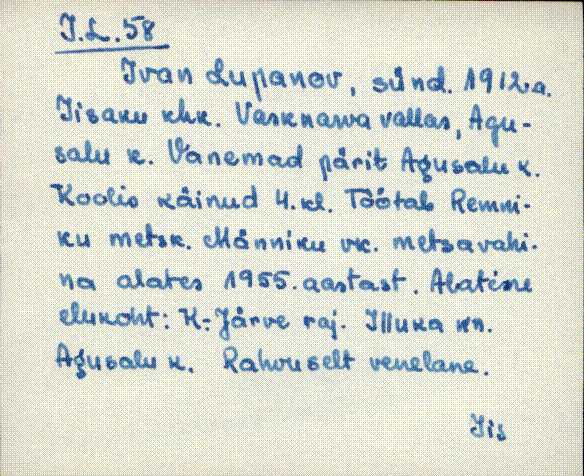 I.L.58
Ivan Lupanov, sünd. 1912.a.
Iisaku khk. Vasknarva vallas, Agu-
salu k. Vanemad pärit Agusalu k.
Koolis käinud 4.kl. Töötab Remni-
ku metsk. Männiku vk. metsavahi-
na alates 1955.aastast. Alatine
elukoht: K-Järve raj. Illuka kn.
Agusalu k. Rahvuselt venelane.
Iis